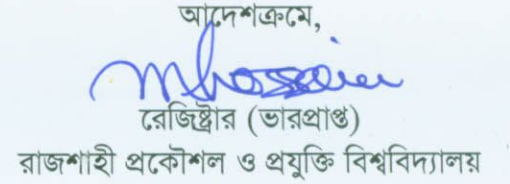 আদেশক্রমে,
রেজিষ্ট্রার (ভারপ্রাপ্ত)
রাজশাহী প্রকৌশল ও প্রযুক্তি বিশ্ববিদ্যালয়